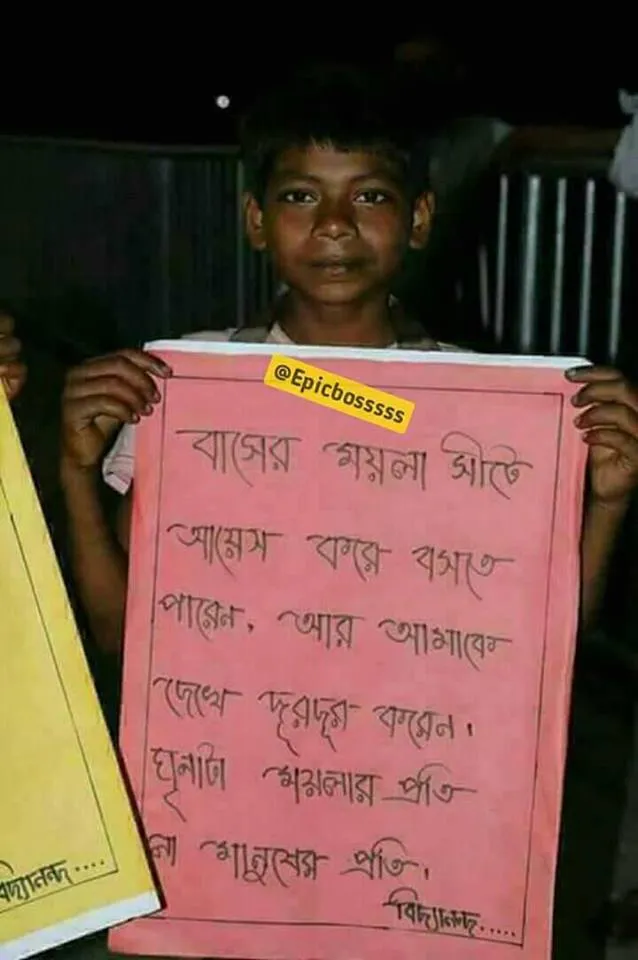 @Epicbosssss
বাসের ময়লা সীটে
আয়েস করে বসতে
পারেন, আর আমাকে
দেখে দূরদূর করেন।
ঘৃনাটা ময়লার প্রতি
না মানুষের প্রতি।
বিদ্যানন্দ.....
বিদ্যানন্দ....